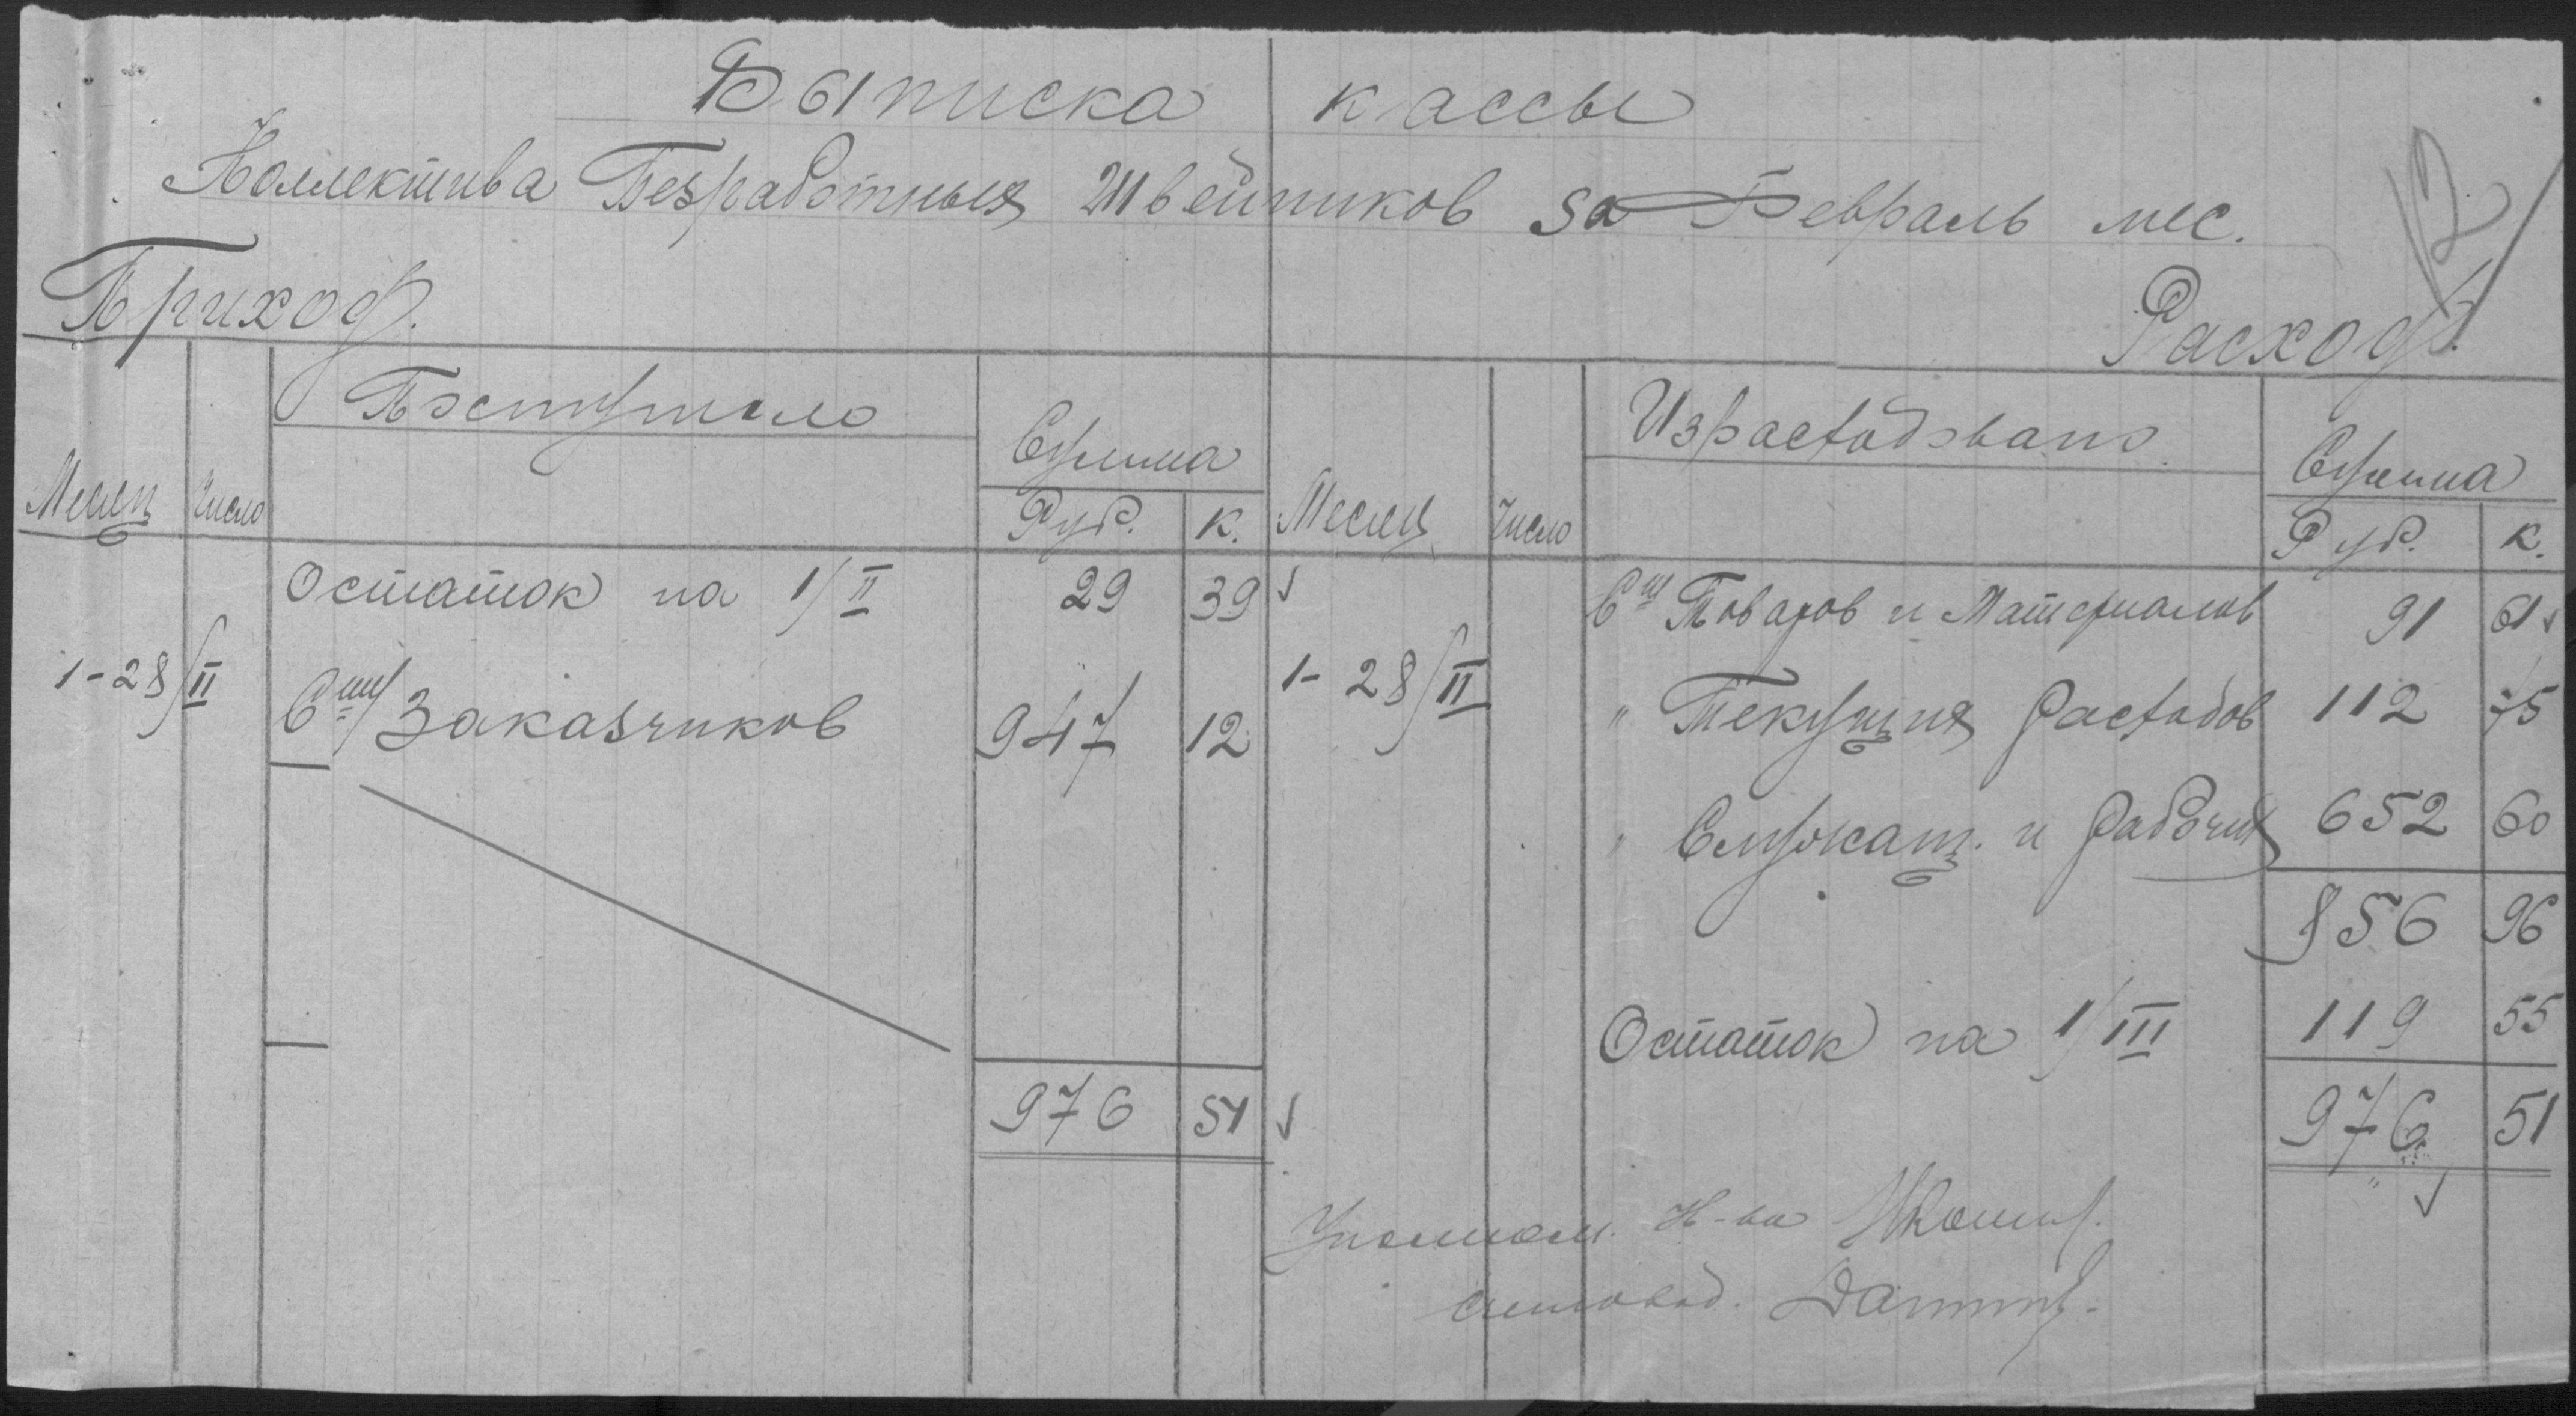 Выписка кассы
Коллектива Безработных Швейников за Февраль мес.
12
Приход.
Расход.
Месяц Число Поступило Сумма Руб. К. Месяц Число Израсходовано Сумма Руб. К.
Остаток на 1/II 29 39 Сч Товаров и Материалов 91 61
1-28/II Сч/ Заказчиков 947 12 1-28/II " Текущих расходов 112 75
" Служащ. и рабочих 652 60
856 96
Остаток на 1/III 119 55
976 51 976 51
Уполном. К-ва
счетовод.